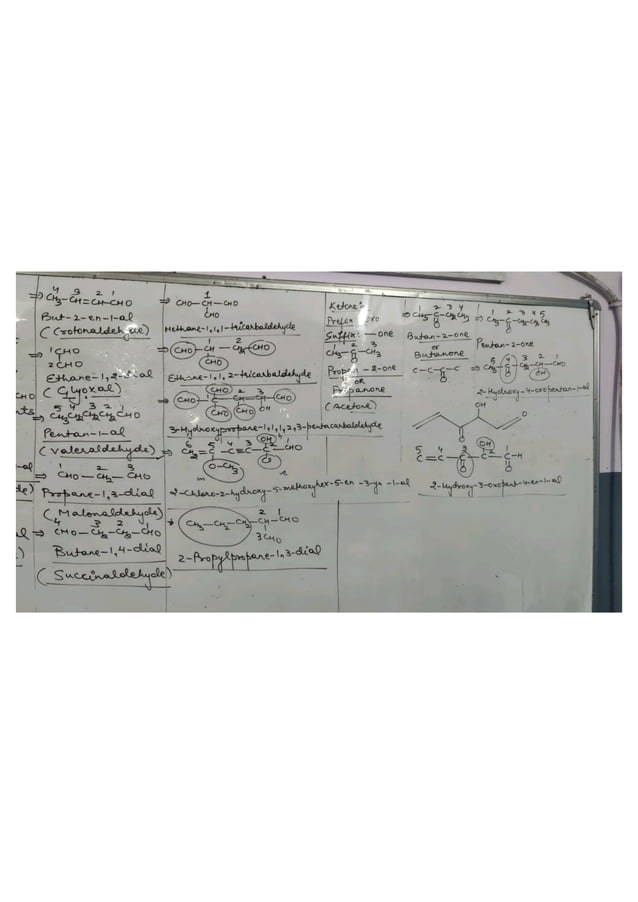 4 3 2 1
⇒ CH3-CH=CH-CHO
But-2-en-1-al
(Crotonaldehyde)
⇒ 1CHO
2CHO
Ethane-1,2-dial
(Glyoxal)
5 4 3 2 1
⇒ CH3CH2CH2CH2CHO
Pentan-1-al
(Valeraldehyde)
1 2 3
⇒ CHO-CH2-CHO
Propane-1,3-dial
(Malonaldehyde)
4 3 2 1
⇒ CHO-CH2-CH2-CHO
Butane-1,4-dial
(Succinaldehyde)
1
⇒ CHO-CH-CHO
CHO
Methane-1,1,1-tricarbaldehyde
1 2
⇒ CHO-CH-CH2-CHO
CHO
Ethane-1,1,2-tricarbaldehyde
CHO
1 2 3
⇒ CHO-C-CH-CH-CHO
CHO CHO OH
3-Hydroxypropane-1,1,1,2,3-pentacarbaldehyde
OH
6 5 4 3 2 1
⇒ CH2=C-C≡C-C-CHO
O-CH3 Cl
2-Chloro-2-hydroxy-5-methoxyhex-5-en-3-yn-1-al
2 1
CH3-CH2-CH2-CH-CHO
3CHO
2-Propylpropane-1,3-dial
Ketone:
Prefix: oxo
Suffix: -one
1 2 3
CH3-C-CH3
O
Propan-2-one
or
Propanone
(acetone)
1 2 3 4
⇒ CH3-C-CH2CH3
O
Butan-2-one
or
Butanone
C-C-C-C
O
1 2 3 4 5
⇒ CH3-C-CH2CH2CH3
O
Pentan-2-one
5 4 3 2 1
⇒ CH3-C-CH2-CH-CHO
O OH
2-Hydroxy-4-oxopentan-1-al
OH
O
O
OH
5 4 3 2 1
C=C-C-C-C-H
O O
2-Hydroxy-3-oxopent-4-en-1-al